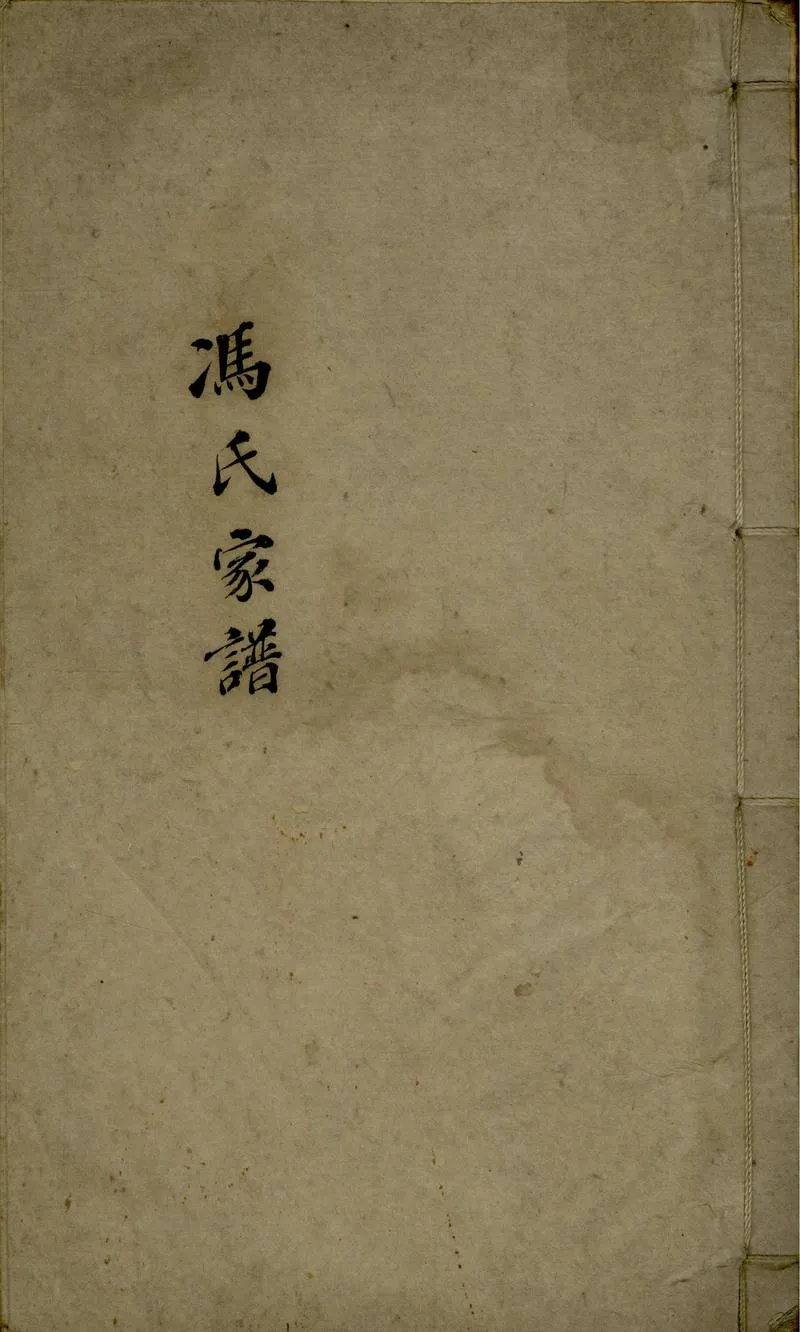 馮氏家譜